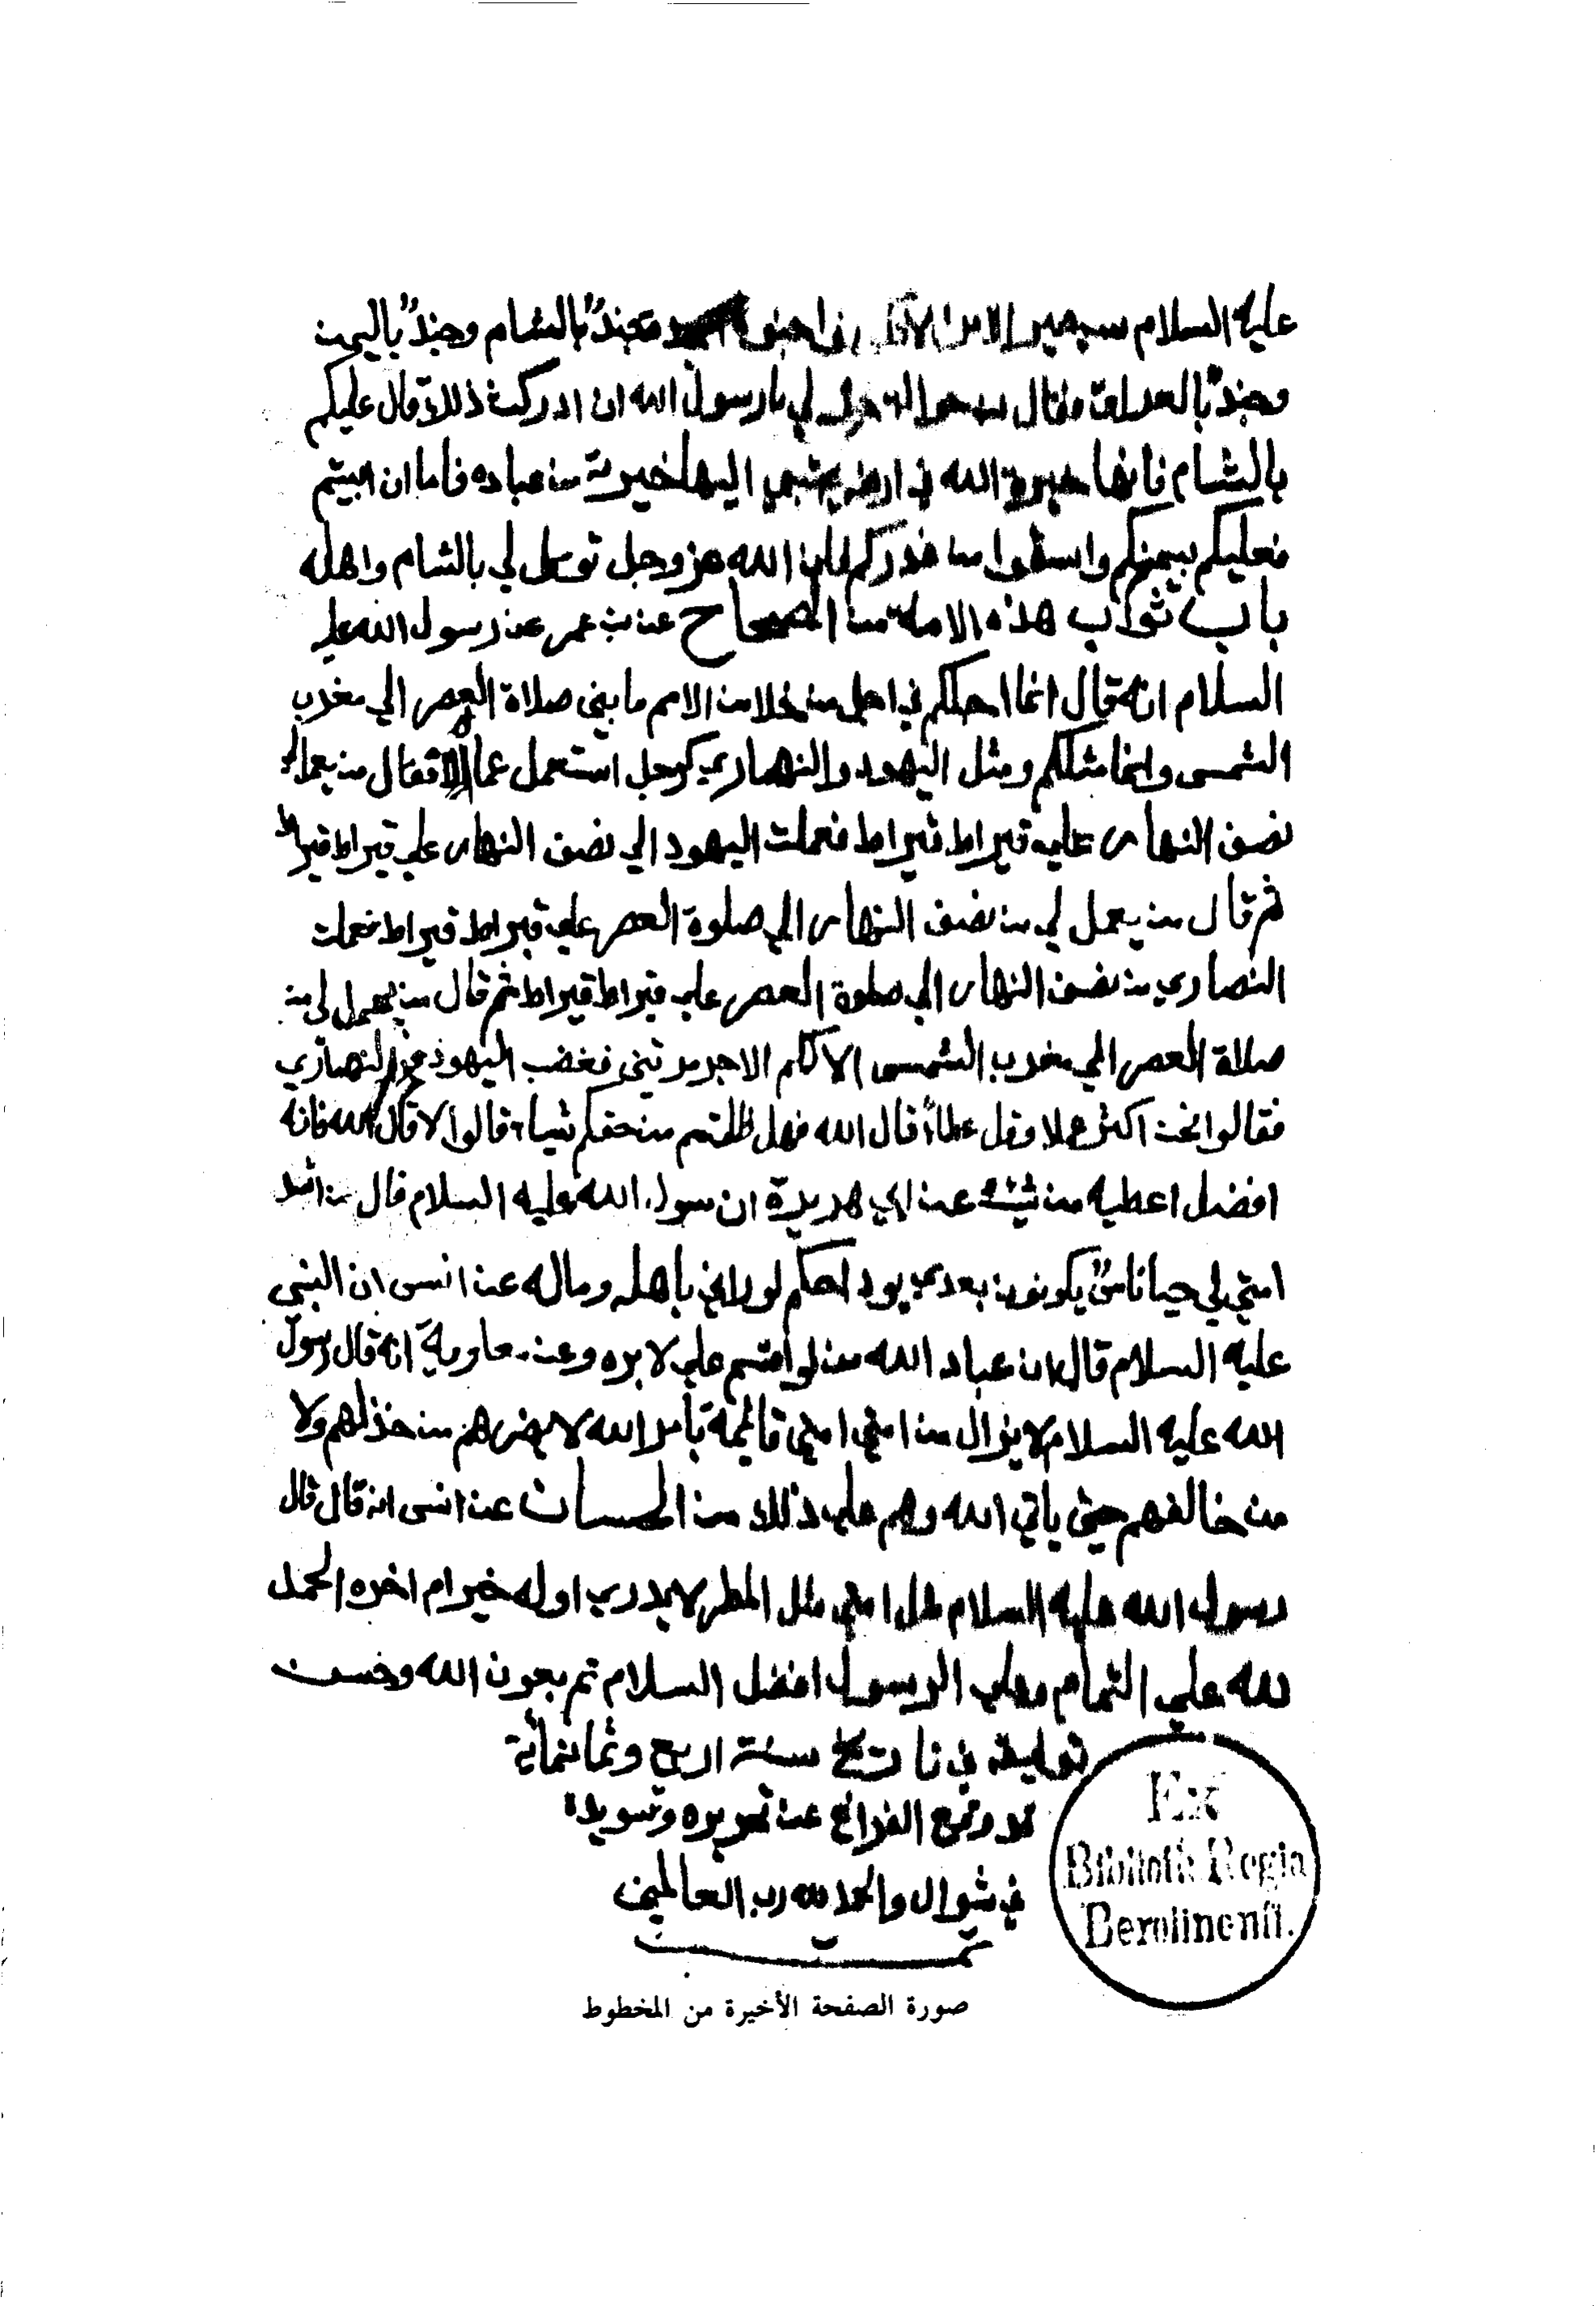 عليه السلام سيصير الامر الا ان تكونوا جنود مجندة جند بالشام وجند باليمن
وجند بالعراق فقال بن حوالة خر لي يا رسول الله ان ادركت ذلك قال عليكم
بالشام فانها خيرة الله في ارضه يجتبي اليها خيرته من عباده فاما ان ابيتم
فعليكم بيمنكم واسقوا من غدركم فان الله عز وجل توكل لي بالشام واهله
باب ثواب هذه الامة من الصحاح عن بن عمر عن رسول الله عليه
السلام انه قال انما اجلكم في اجل من خلا من الامم ما بين صلاة العصر الي مغرب
الشمس وانما مثلكم ومثل اليهود والنصاري كرجل استعمل عمالا فقال من يعمل لي
نصف النهار علي قيراط قيراط فعملت اليهود الي نصف النهار علي قيراط قيراط
ثم قال من يعمل لي من نصف النهار الي صلوة العصر علي قيراط قيراط فعملت
النصاري من نصف النهار الي صلوة العصر علي قيراط قيراط ثم قال من يعمل لي من
صلاة العصر الي مغرب الشمس الا لكم الاجر مرتين فغضب اليهود والنصاري
فقالوا نحن اكثر عملا وقل عطاء قال الله فهل ظلمتم من حقكم شيا قالوا لا قال الله فانه
افضل اعطيه من شئت عن ابي هريرة ان رسول الله عليه السلام قال من اشد
امتي لي حبا ناس يكونون بعدي يود احدكم لو راني باهله وماله عن انس ان النبي
عليه السلام قال ان من عباد الله من لو اقسم علي لابره وعن معاوية انه قال رسول
الله عليه السلام لا يزال من امتي امتي قائمة بامر الله لا يضرهم من خذلهم ولا
من خالفهم حتي ياتي الله وهم علي ذلك من الحسان عن انس انه قال قال
رسول الله عليه السلام مثل امتي مثل المطر لا يدري اوله خير ام اخره الحمد
لله علي التمام وعلي الرسول افضل السلام تم بعون الله وحسن
توفيقه في تاريخ سنة اربع وثمانمائة
قد وقع الفراغ عن تحريره وتسويده
في شوال والحمد لله رب العالمين
تمت
Ex
Biblioth. Regia
Berolinensi.
صورة الصفحة الأخيرة من المخطوط